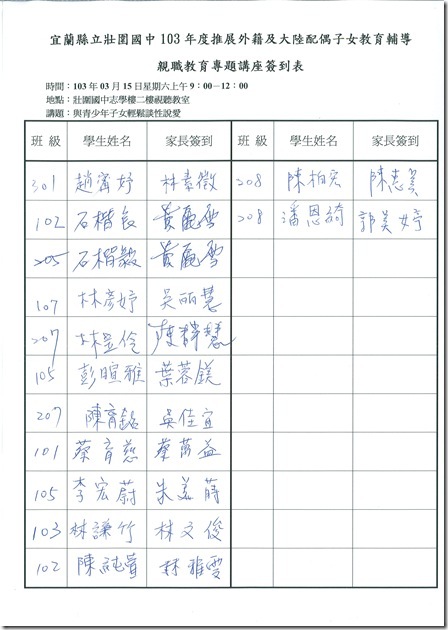 宜蘭縣立壯圍國中 103 年度推展外籍及大陸配偶子女教育輔導
親職教育專題講座簽到表
時間：103 年 03 月 15 日星期六上午 9：00－12：00
地點：壯圍國中志學樓二樓視聽教室
講題：與青少年子女輕鬆談性說愛
班 級 學生姓名 家長簽到 班 級 學生姓名 家長簽到
301 趙甯妤 林素徵 208 陳柏宏 陳惠美
102 石楷長 黃麗雪 208 潘恩綺 郭美婷
205 石楷毅 黃麗雪
107 林彥妤 吳丽慧
207 林昱伶
105 彭暄雅 葉蓉鎂
207 陳育銘 吳佳宜
101 蔡育慈
105 李宏蔚
103 林謙竹 林文俊
102 林雅雯